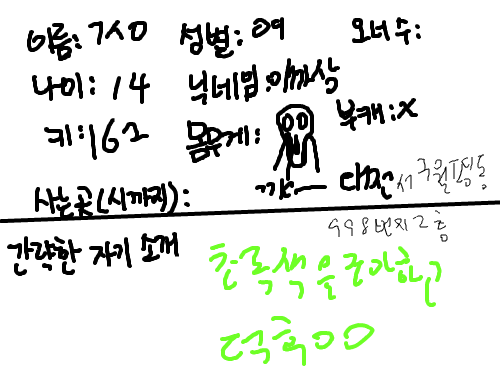 이름: ㄱㅅㅇ 성별: ㅇㅕ 오너 수:
나이: 14 닉네임: 이끼상
키: 162 몸무게: 부캐: x
사는곳(시까지): 대전 서구 월평동
998번지 2층
간략한 자기 소개
초록색을 좋아하고
덕후ㅇㅇ